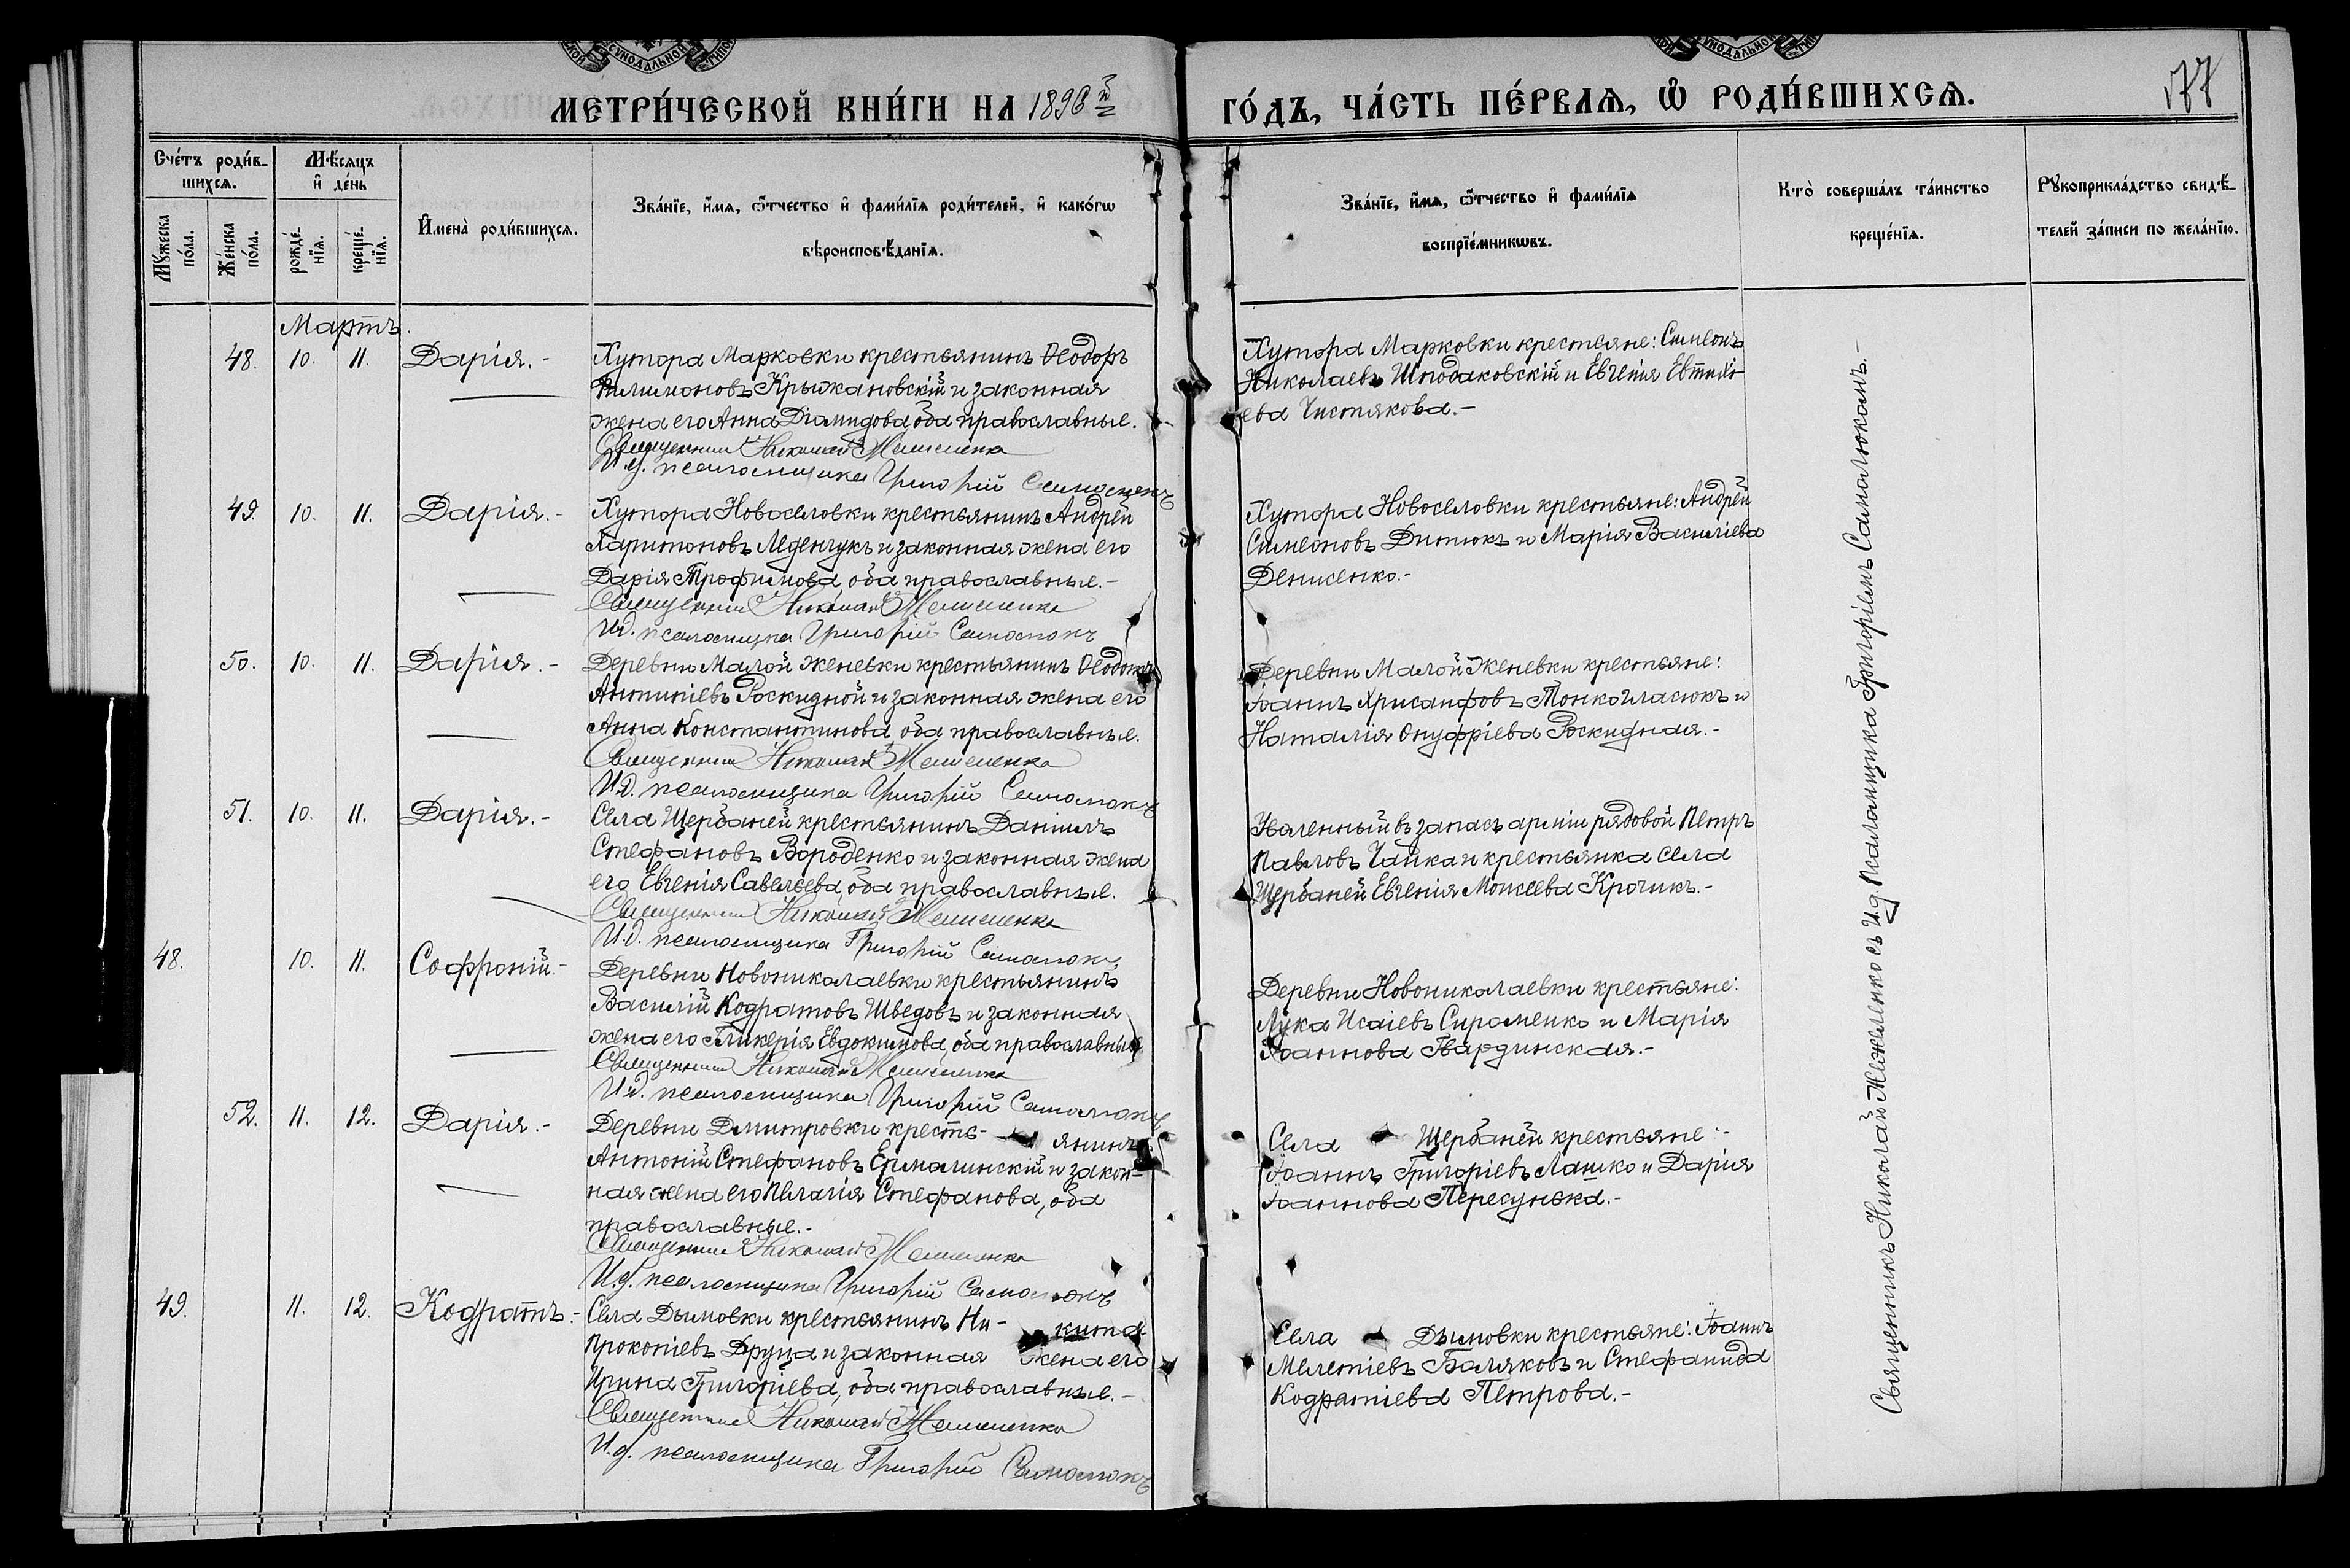 МЕТРИ́ЧЕСКОЙ КНИ́ГИ НА 1896й ГО́ДЪ, ЧА́СТЬ ПЕ́РВАѦ, Ѡ҆ РОДИ́ВШИХСѦ.
177
Счéтъ роди́в-
шихсѧ.
Мѣ́сяцъ
и҆ де́нь
Мꙋ́жеска по́ла.
Же́нска по́ла.
рожде́-нїѧ.
креще́-нїѧ.
И҆мена̀ роди́вшихсѧ.
Зва́нїе, и҆́мѧ, ѻ҆́тчество и҆ фами́лїѧ роди́телей, и҆ како́гѡ
вѣроисповѣ́данїѧ.
Зва́нїе, и҆́мѧ, ѻ҆́тчество и҆ фами́лїѧ
воспрїе́мникѡвъ.
Кто̀ соверша́лъ та́инство
креще́нїѧ.
Рꙋкоприкла́дство свидѣ́-
телей за́писи по жела́нїю.
Мартъ.
48. 10. 11. Дарія.-
Хутора Марковки крестьянинъ Ѳеодоръ
Филимоновъ Крыжановскій и законная
жена его Анна Діомидова, оба православные.
Священникъ Николай
И.д. псаломщика Григорій Самолюкъ
Хутора Марковки крестьяне: Симеонъ
Николаевъ и Евгенія Евтихі-
ева Чистякова.-
49. 10. 11. Дарія.-
Хутора Новоселовки крестьянинъ Андрей
Харитоновъ Леденчукъ и законная жена его
Дарія Трофимова, оба православные.-
Священникъ Николай
И.д. псаломщика Григорій Самолюкъ
Хутора Новоселовки крестьяне: Андрей
Симеоновъ Дитюкъ и Марія Василіева
Денисенко.-
50. 10. 11. Дарія.-
Деревни Малой Женевки крестьянинъ Ѳеодотъ
Антипіевъ Роскидной и законная жена его
Анна Константинова, оба православные.
Священникъ Николай
И.д. псаломщика Григорій Самолюкъ
Деревни Малой Женевки крестьяне:
Іоаннъ Хрисанфовъ Тонкогласюкъ и
Наталія Онуфріева Роскидная.-
51. 10. 11. Дарія.-
Села Щербаней крестьянинъ Даніилъ
Стефановъ Вороденко и законная жена
его Евгенія Савельева, оба православные.
Священникъ Николай
И.д. псаломщика Григорій Самолюкъ
Уволенный въ запасъ арміи рядовой Петръ
Павловъ Чайка и крестьянка села
Щербаней Евгенія Моисеева Крочикъ.-
48. 10. 11. Софроній.-
Деревни Новониколаевки крестьянинъ
Василій Кодратовъ Шведовъ и законная
жена его Гликерія Евдокимова, оба православные
Священникъ Николай
И.д. псаломщика Григорій Самолюкъ
Деревни Новониколаевки крестьяне:
Лука Исаіевъ Сироменко и Марія
Іоаннова Гвардинская.-
52. 11. 12. Дарія.-
Деревни Дмитровки кресть- янинъ
Антоній Стефановъ Ермолинскій и закон-
ная жена его Пелагія Стефанова, оба
православные.-
Священникъ Николай
И.д. псаломщика Григорій Самолюкъ
Села Щербаней крестьяне:-
Іоаннъ Григоріевъ Лашко и Дарія
Іоаннова Пересунька.-
49. 11. 12. Кодратъ.-
Села Дымовки крестьянинъ Ни- кита
Прокопіевъ Друца и законная жена его
Ирина Григоріева, оба православные.-
Священникъ Николай
И.д. псаломщика Григорій Самолюкъ
Села Дымовки крестьяне: Іоаннъ
Мелетіевъ Баляковъ и Стефанида
Кодратіева Петрова.-
Священникъ Николай Межеленко съ И.д. Псаломщика Григоріемъ Самолюкомъ.-